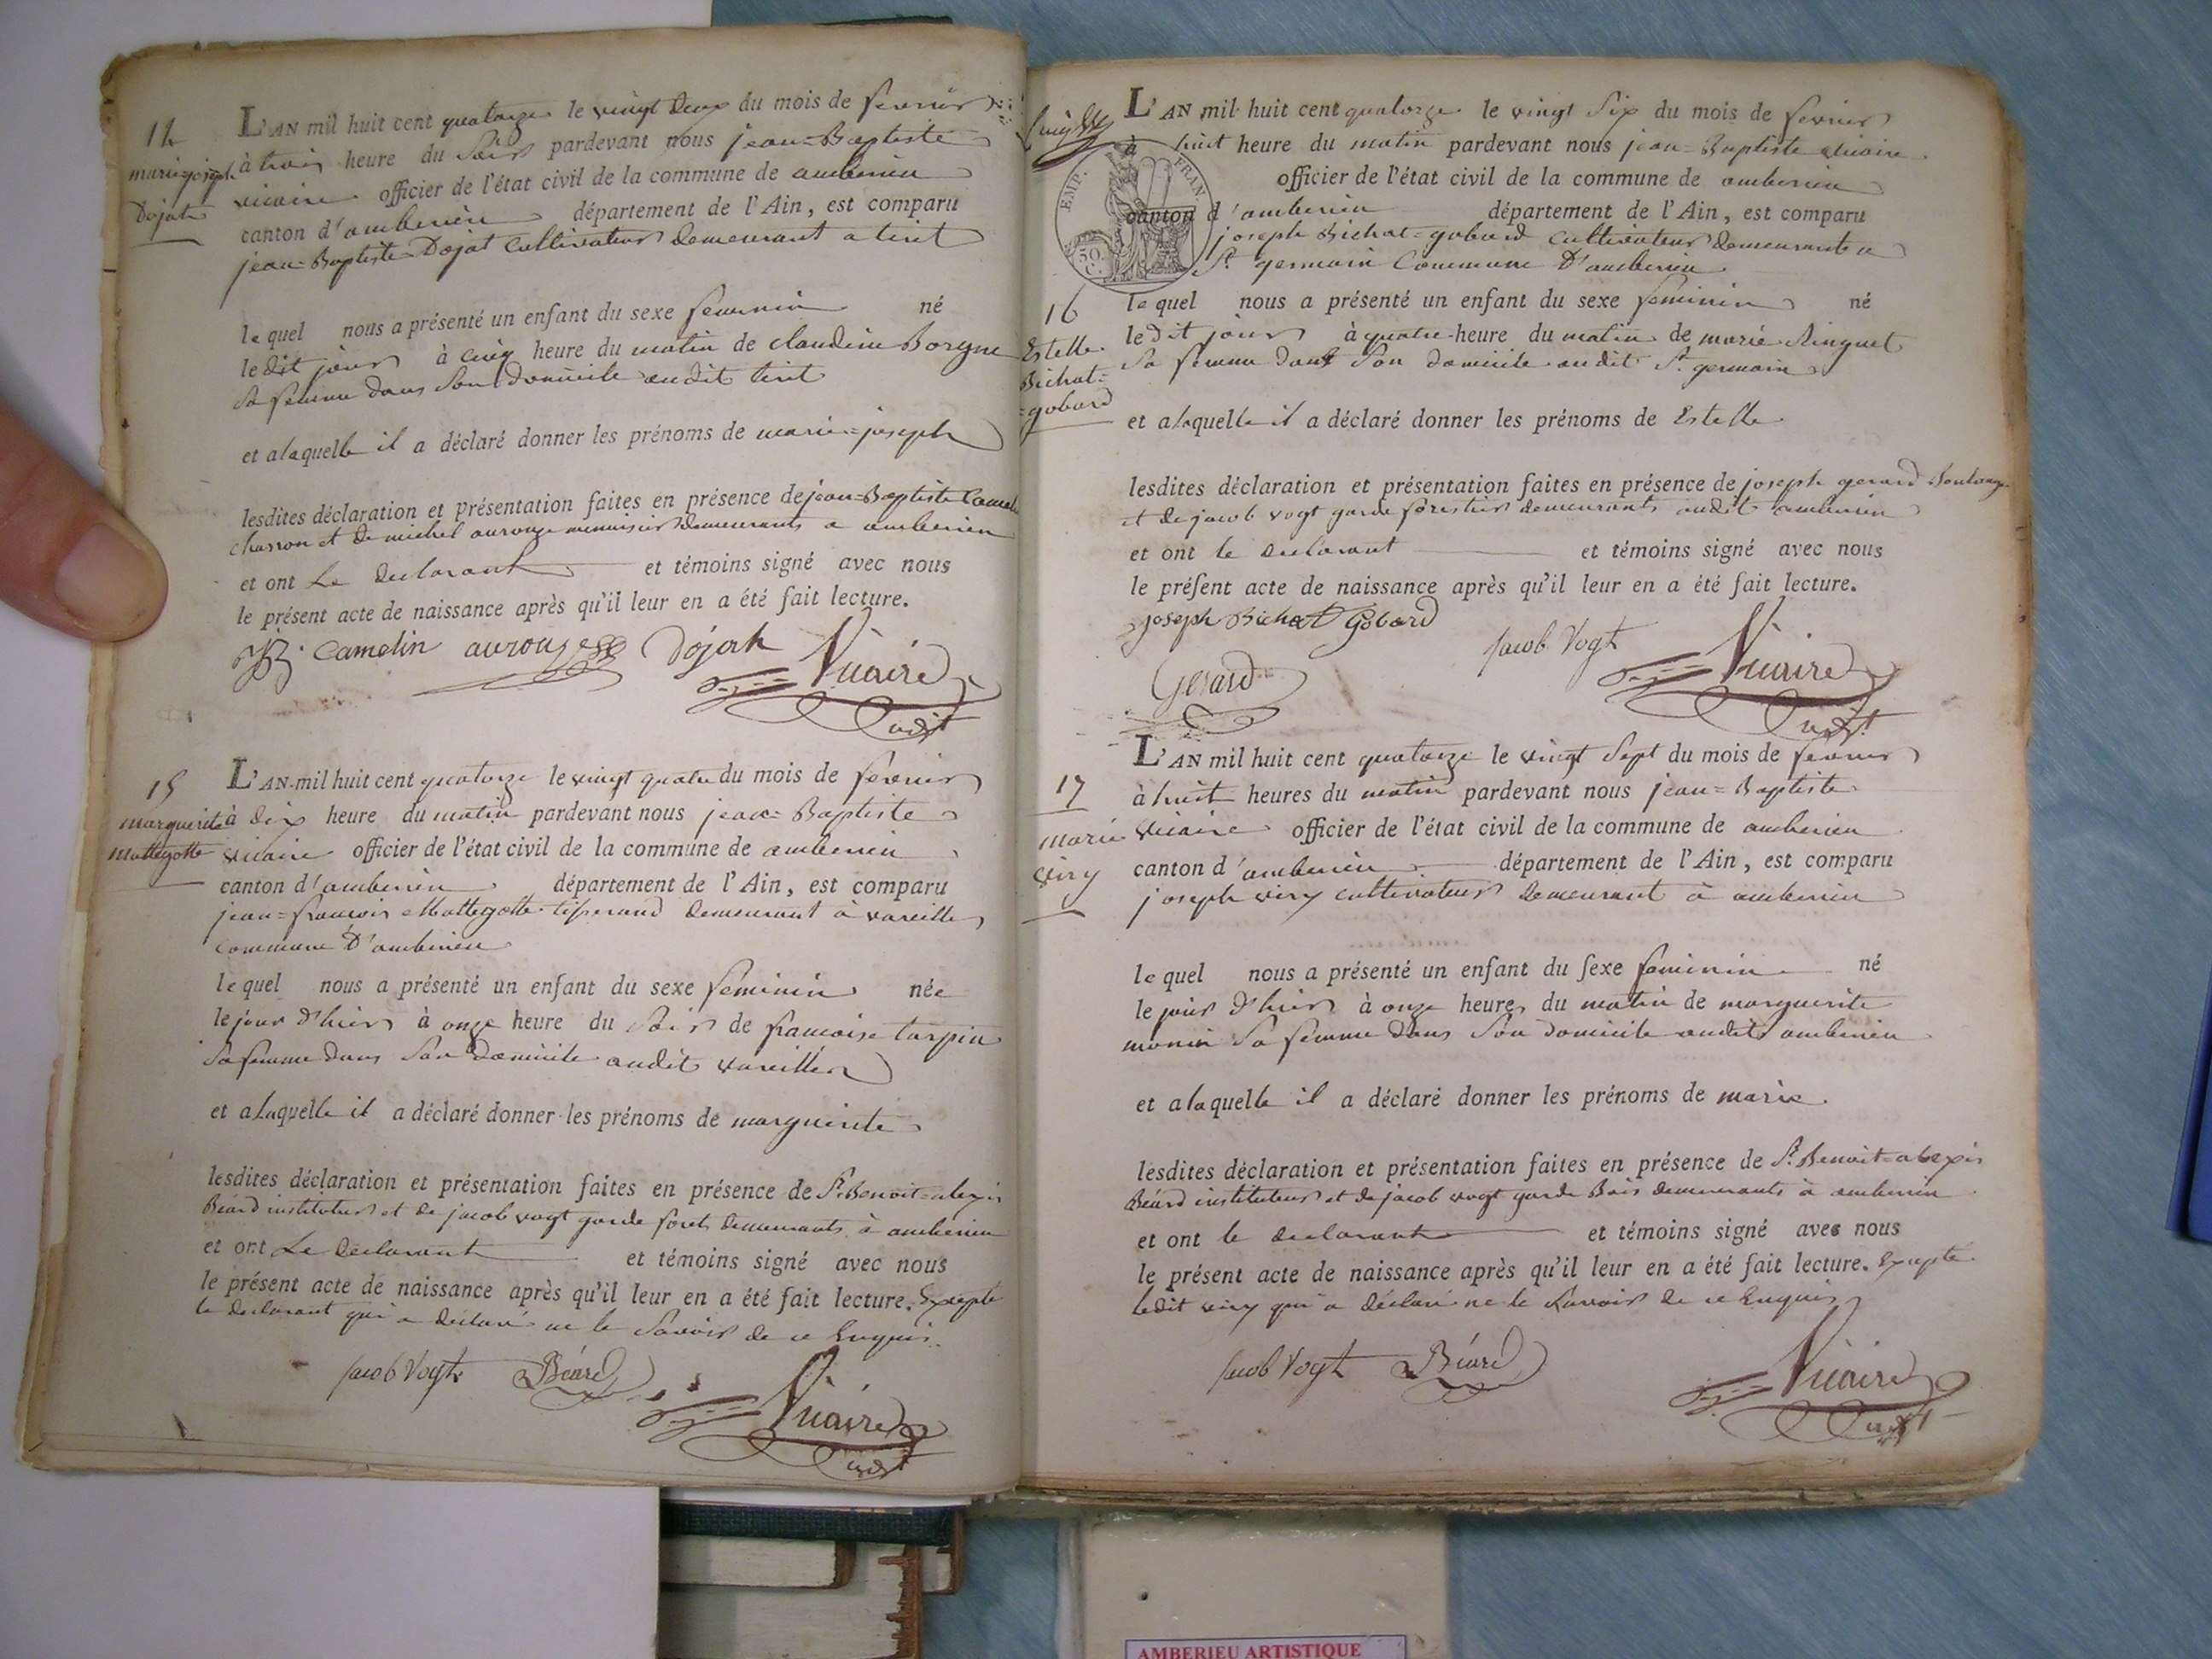 14
marie joseph
Dojat
L'AN mil huit cent quatorze le vingt deux du mois de fevrier
à trois heure du Soir pardevant nous jean=Baptiste
vicaire officier de l'état civil de la commune de amberieu
canton d'amberieu département de l'Ain, est comparu
jean-Baptiste Dojat Cultivateur demeurant a tiret
lequel nous a présenté un enfant du sexe feminin né
ledit jour à cinq heure du matin de claudine Borgne
Sa femme dans Son domicile audit tiret
et alaquelle il a déclaré donner les prénoms de marie=joseph
lesdites déclaration et présentation faites en présence de jean=Baptiste Camelin
charron et de michel aurouze menuisier demeurants a amberieu
et ont Le declarant et témoins signé avec nous
le présent acte de naissance après qu'il leur en a été fait lecture.
Camelin aurouze Dojat Vicaire
adjt
15
marguerite
Mattegotte
L'AN mil huit cent quatorze le vingt quatre du mois de fevrier
à dix heure du matin pardevant nous jean=Baptiste
vicaire officier de l'état civil de la commune de amberieu
canton d'amberieu département de l'Ain, est comparu
jean=francois Mattegotte tisserand demeurant à vareilles
commune D'amberieu
lequel nous a présenté un enfant du sexe feminin née
le jour d'hier à onze heure du Soir de francoise turpin
Sa femme dans Son domicile audit vareilles
et alaquelle il a déclaré donner les prénoms de marguerite
lesdites déclaration et présentation faites en présence de Sr. Benoit=alexis
Béard instituteur et de jacob vogt garde forets demeurants à amberieu
et ont Le declarant et témoins signé avec nous
le présent acte de naissance après qu'il leur en a été fait lecture. Excepté
le declarant qui a declaré ne le Savoir de ce Enquis.
Jacob Vogt Béard
Vicaire
adjt
EMP. FRAN.
50 C.
L'AN mil huit cent quatorze le vingt Six du mois de fevrier
à huit heure du matin pardevant nous jean=Baptiste vicaire
officier de l'état civil de la commune de amberieu
canton d'amberieu département de l'Ain, est comparu
joseph Bichat=gobard cultivateur demeurant a
St. germain Commune D'amberieu
16
Estelle
Bichat=
=gobard
lequel nous a présenté un enfant du sexe feminin né
ledit jour à quatre heure du matin de marie Ringuet
Sa femme dans Son domicile audit St. germain
et alaquelle il a déclaré donner les prénoms de Estelle
lesdites déclaration et présentation faites en présence de joseph gerard Boulanger
et de jacob vogt garde forestier demeurants audit amberieu
et ont le declarant et témoins signé avec nous
le présent acte de naissance après qu'il leur en a été fait lecture.
joseph Bichat Gobard
Jacob Vogt Vicaire
Gerard
adjt
17
marie
viry
L'AN mil huit cent quatorze le vingt Sept du mois de fevrier
à huit heures du matin pardevant nous jean=Baptiste
vicaire officier de l'état civil de la commune de amberieu
canton d'amberieu département de l'Ain, est comparu
joseph viry cultivateur demeurant à amberieu
lequel nous a présenté un enfant du sexe feminin né
le jour d'hier à onze heures du matin de marguerite
monin Sa femme dans Son domicile audit amberieu
et alaquelle il a déclaré donner les prénoms de marie.
lesdites déclaration et présentation faites en présence de Sr. Benoit=alexis
Béard instituteur et de jacob vogt garde Bois demeurants à amberieu
et ont le declarant et témoins signé avec nous
le présent acte de naissance après qu'il leur en a été fait lecture. Excepte
ledit viry qui a déclaré ne le Savoir de ce Enquis
Jacob Vogt Béard
Vicaire
adjt
AMBERIEU ARTISTIQUE